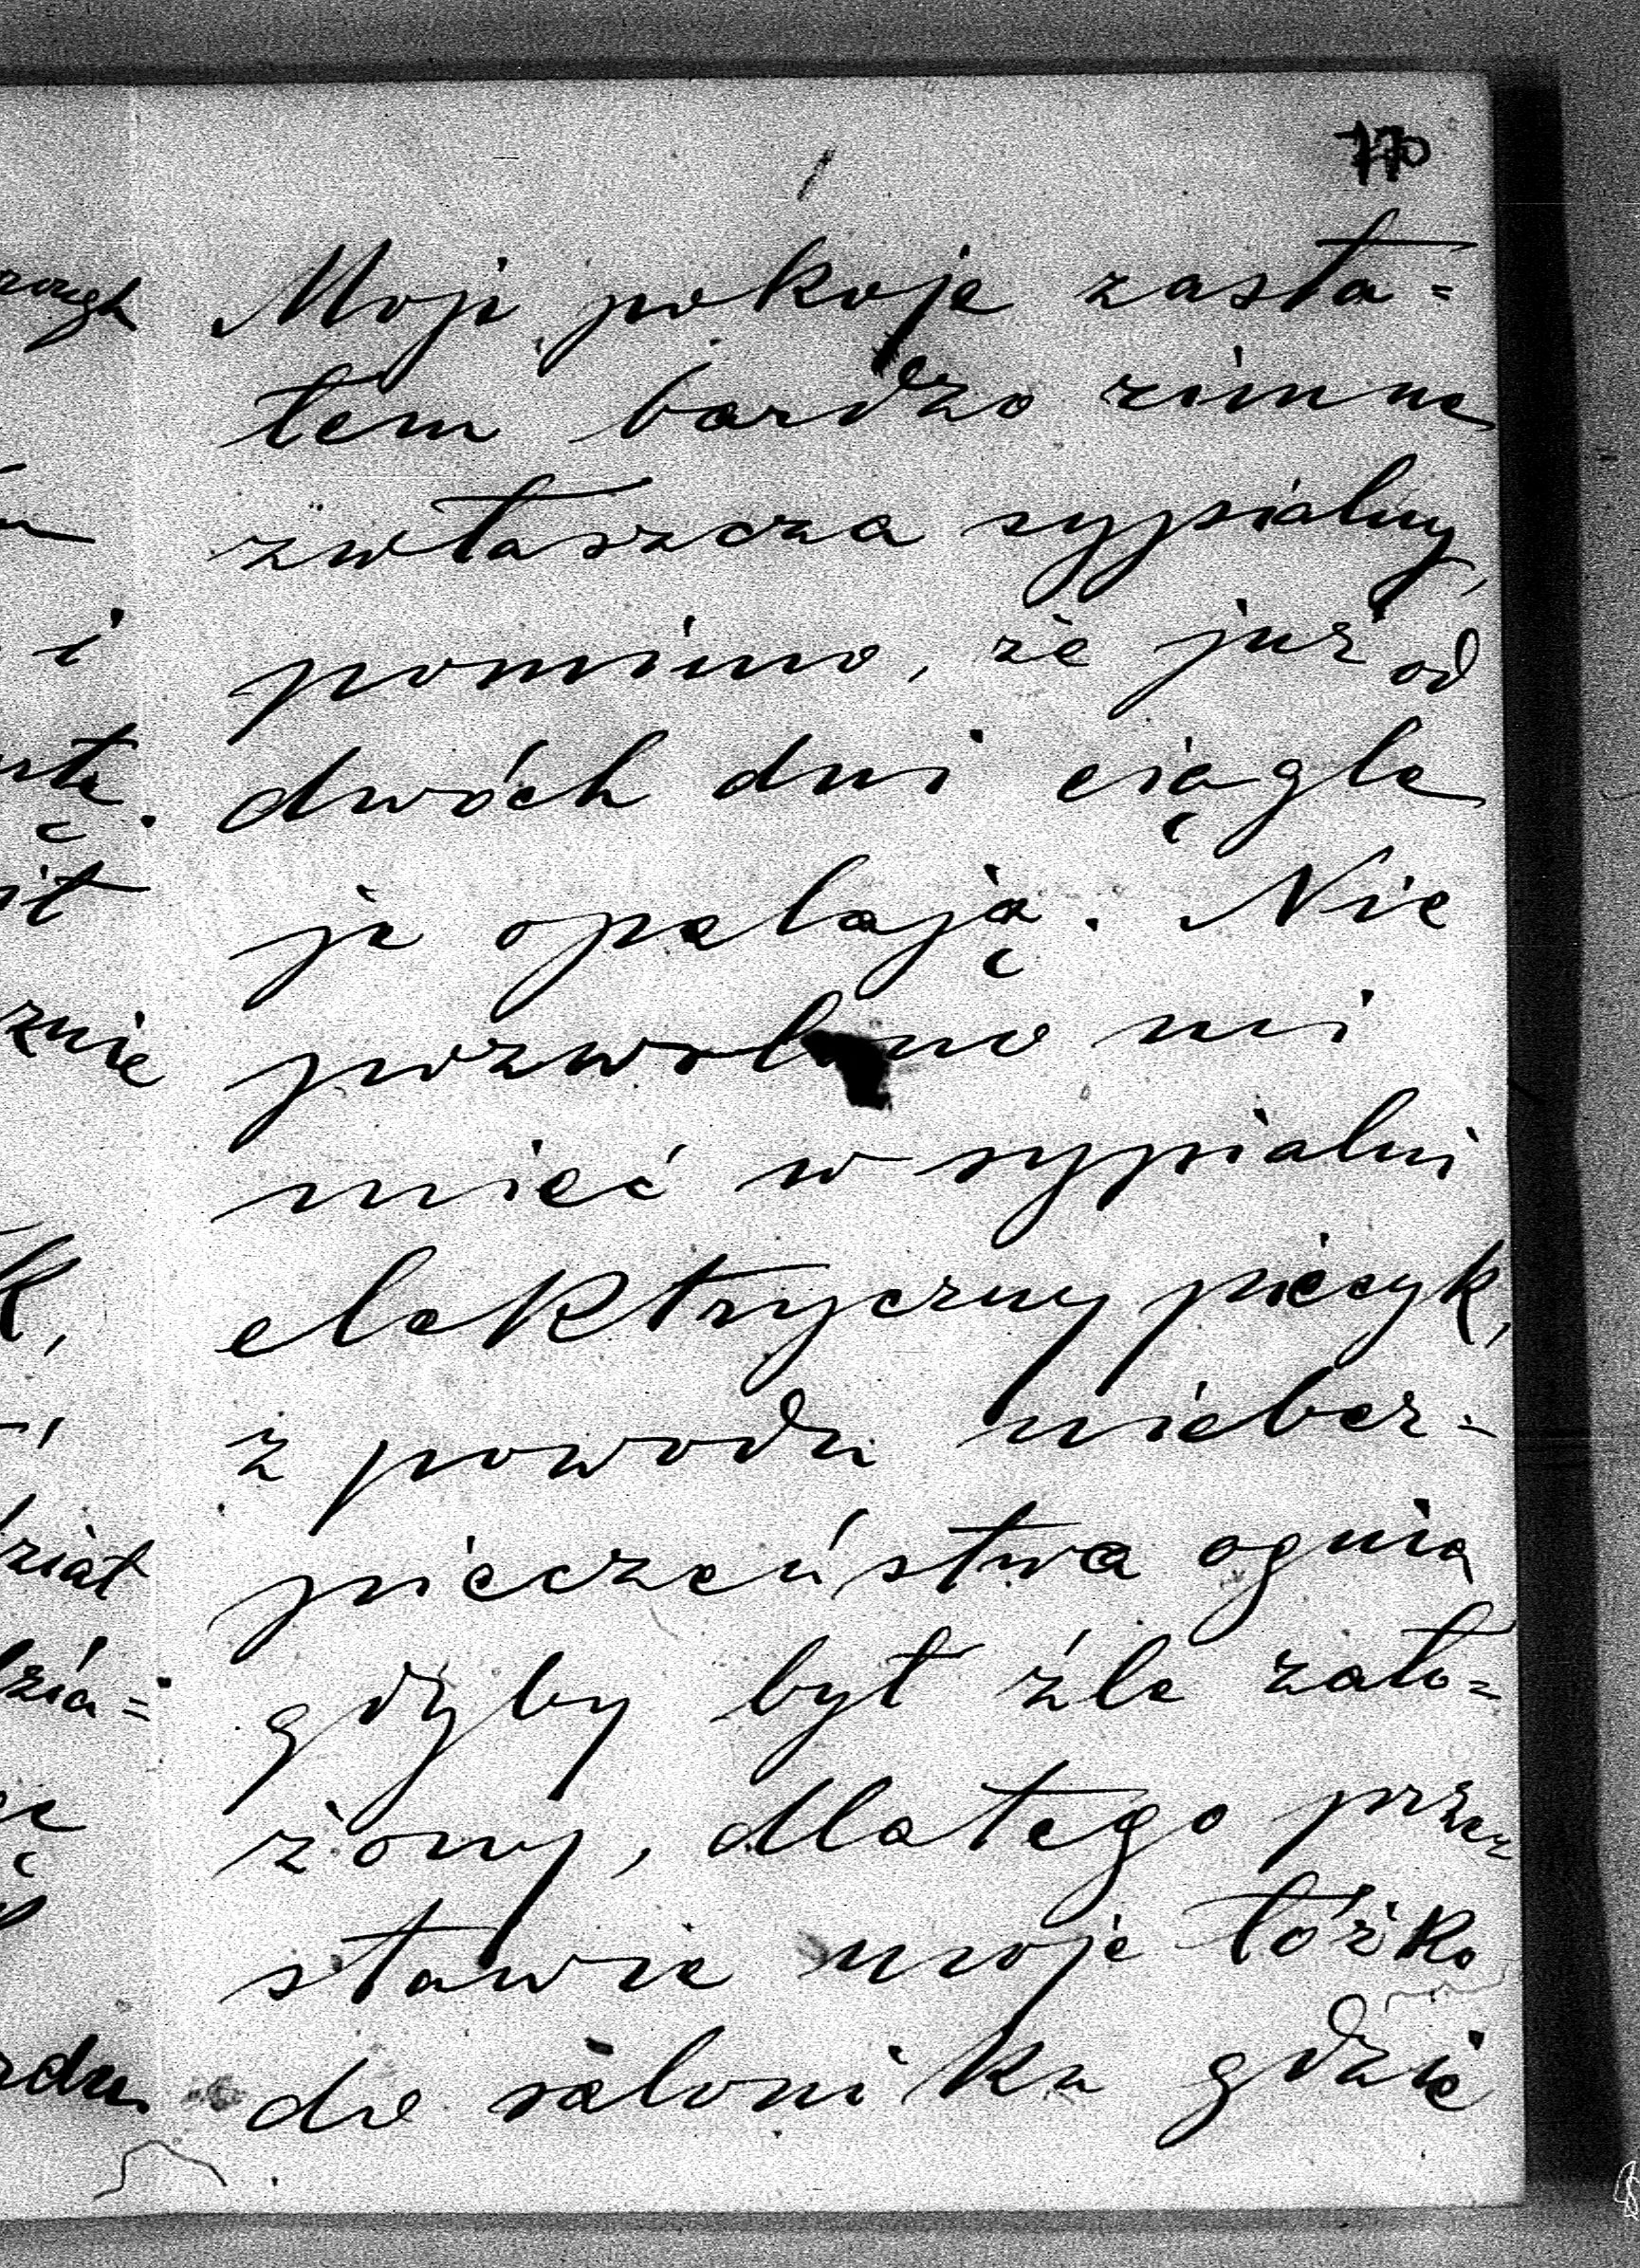 770
Moje pokoje zasta=
łem bardzo zimne
zwłaszcza sypialny,
pomimo, że już od
dwóch dni ciągle
je opalają. Nie
pozwolono mi
mieć w sypialni
elektryczny piecyk,
z powodu niebez-
pieczeństwa ognia
gdyby był źle zało=
żony, dlatego prze
stawię moje łóżko
do saloniku gdzie
i
K,